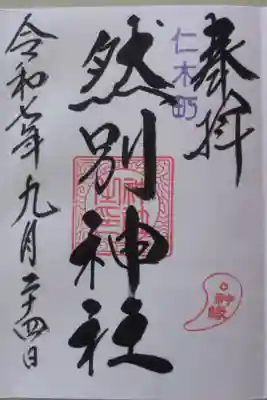 奉拝
仁木町
然別神社
令和七年九月二十四日